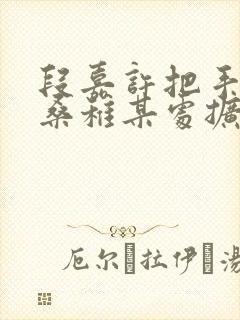 段嘉許把手
桑稚某處擴
厄尔•拉伊•湯